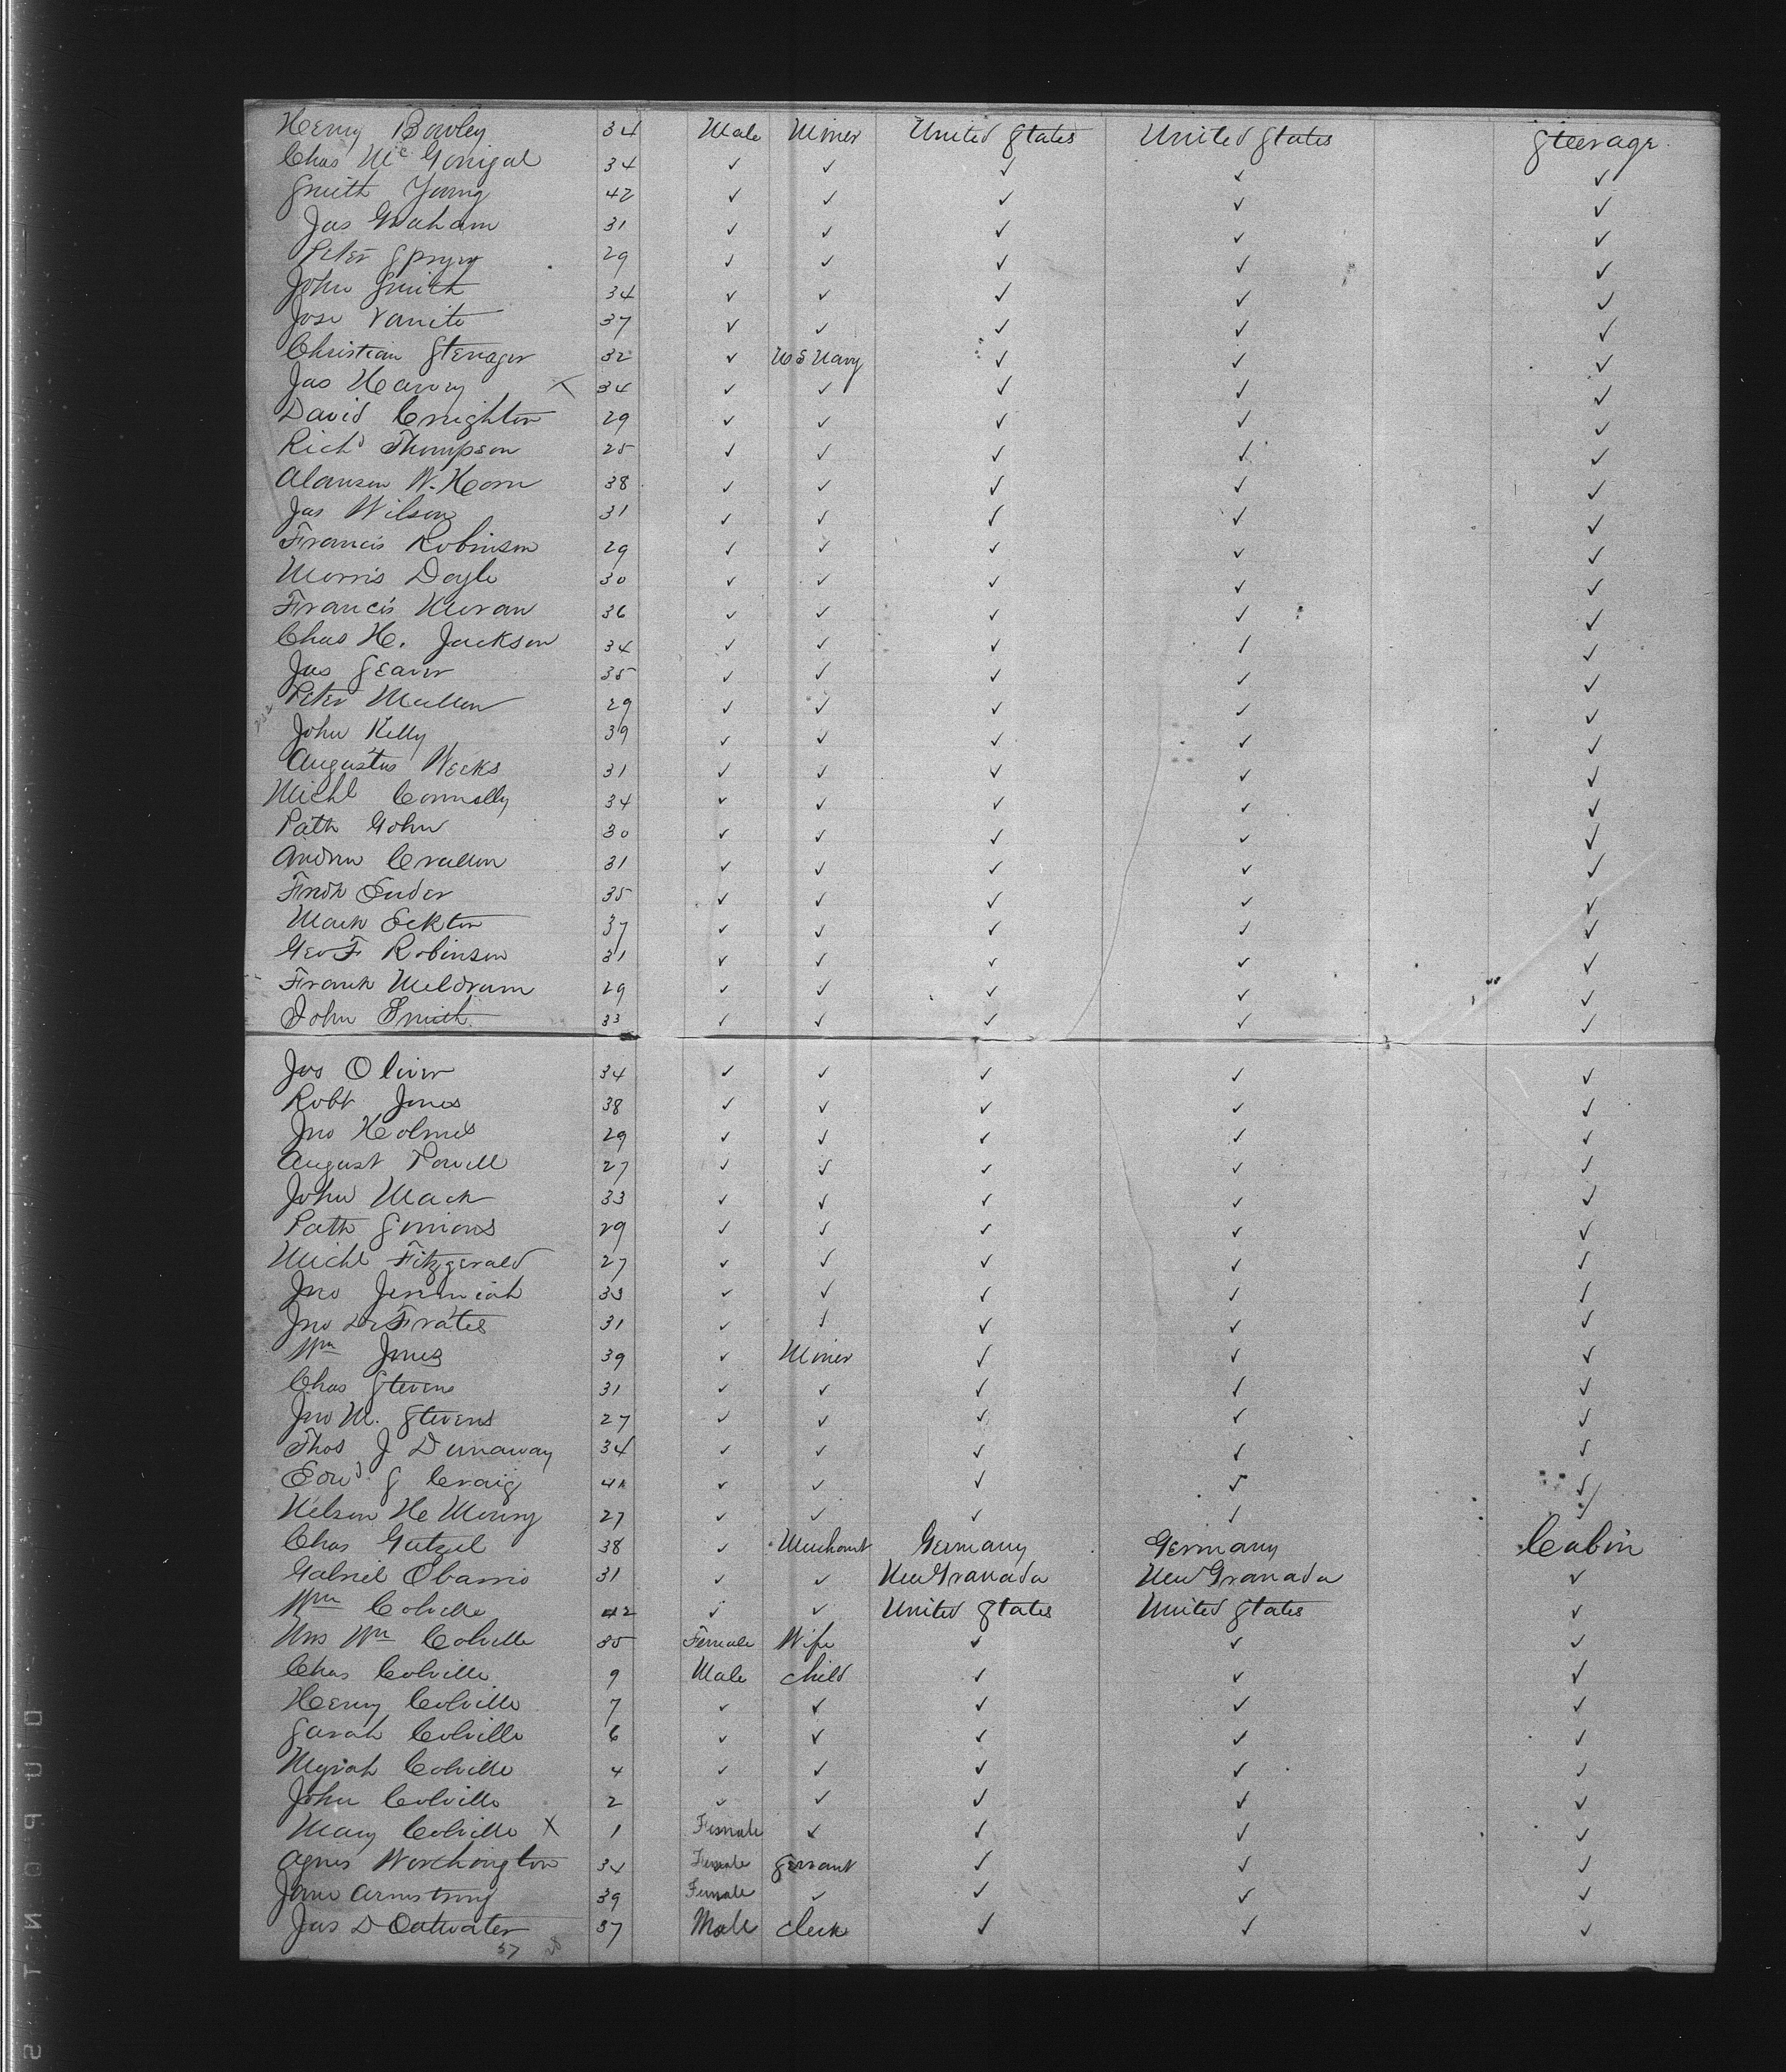 Henry Bowley 34 Male Miner United States United States Steerage
Chas McGonigal 34 ✓ ✓ ✓ ✓ ✓
Smith Young 42 ✓ ✓ ✓ ✓ ✓
Jas Graham 31 ✓ ✓ ✓ ✓ ✓
Peter 29 ✓ ✓ ✓ ✓ ✓
John Smith 34 ✓ ✓ ✓ ✓ ✓
Jose 37 ✓ ✓ ✓ ✓ ✓
Christian 32 ✓ U S Navy ✓ ✓ ✓
Jas Harvey X 34 ✓ ✓ ✓ ✓ ✓
David Crighton 29 ✓ ✓ ✓ ✓ ✓
Richd Thompson 25 ✓ ✓ ✓ ✓ ✓
Alanson W. Horn 38 ✓ ✓ ✓ ✓ ✓
Jas Wilson 31 ✓ ✓ ✓ ✓ ✓
Francis Robinson 29 ✓ ✓ ✓ ✓ ✓
Morris Doyle 30 ✓ ✓ ✓ ✓ ✓
Francis Moran 36 ✓ ✓ ✓ ✓ ✓
Chas H. Jackson 34 ✓ ✓ ✓ ✓ ✓
Jas 35 ✓ ✓ ✓ ✓ ✓
Peter Mullen 29 ✓ ✓ ✓ ✓ ✓
John Kelly 39 ✓ ✓ ✓ ✓ ✓
Augustus Weeks 31 ✓ ✓ ✓ ✓ ✓
Michl Connolly 34 ✓ ✓ ✓ ✓ ✓
Patk Gohn 30 ✓ ✓ ✓ ✓ ✓
Andrew 31 ✓ ✓ ✓ ✓ ✓
Fredk 35 ✓ ✓ ✓ ✓ ✓
Mark Eckton 37 ✓ ✓ ✓ ✓ ✓
Geo F Robinson 31 ✓ ✓ ✓ ✓ ✓
Frank Meldrum 29 ✓ ✓ ✓ ✓ ✓
John Smith 33 ✓ ✓ ✓ ✓ ✓
Jos Oliver 34 ✓ ✓ ✓ ✓ ✓
Robt Jones 38 ✓ ✓ ✓ ✓ ✓
Jno Holmes 29 ✓ ✓ ✓ ✓ ✓
August Powell 27 ✓ ✓ ✓ ✓ ✓
John Mack 33 ✓ ✓ ✓ ✓ ✓
Patk 29 ✓ ✓ ✓ ✓ ✓
Michl Fitzgerald 27 ✓ ✓ ✓ ✓ ✓
Jno Jeremiah 33 ✓ ✓ ✓ ✓ ✓
Jno De Frates 31 ✓ ✓ ✓ ✓ ✓
Wm Jones 39 ✓ Miner ✓ ✓ ✓
Chas Stevens 31 ✓ ✓ ✓ ✓ ✓
Jno M. Stevens 27 ✓ ✓ ✓ ✓ ✓
Thos J Dunaway 34 ✓ ✓ ✓ ✓ ✓
Edwd S Craig ✓ ✓ ✓ ✓ ✓
Nelson H 27 ✓ ✓ ✓ ✓ ✓
Chas Gutzel 38 ✓ Merchant Germany Germany Cabin
Gabriel Obarrio 31 ✓ ✓ New Granada New Granada ✓
Wm Colville 42 ✓ ✓ United States United States ✓
Mrs Wm Colville 35 Female Wife ✓ ✓ ✓
Chas Colville 9 Male child ✓ ✓ ✓
Henry Colville 7 ✓ ✓ ✓ ✓ ✓
Sarah Colville 6 ✓ ✓ ✓ ✓ ✓
Myrah Colville 4 ✓ ✓ ✓ ✓ ✓
John Colville 2 ✓ ✓ ✓ ✓ ✓
Mary Colville X 1 Female ✓ ✓ ✓ ✓
Agnes Worthington 34 Female Servant ✓ ✓ ✓
Jane Armstrong 39 Female ✓ ✓ ✓ ✓
Jas D Outwater 37 Male Clerk ✓ ✓ ✓
57